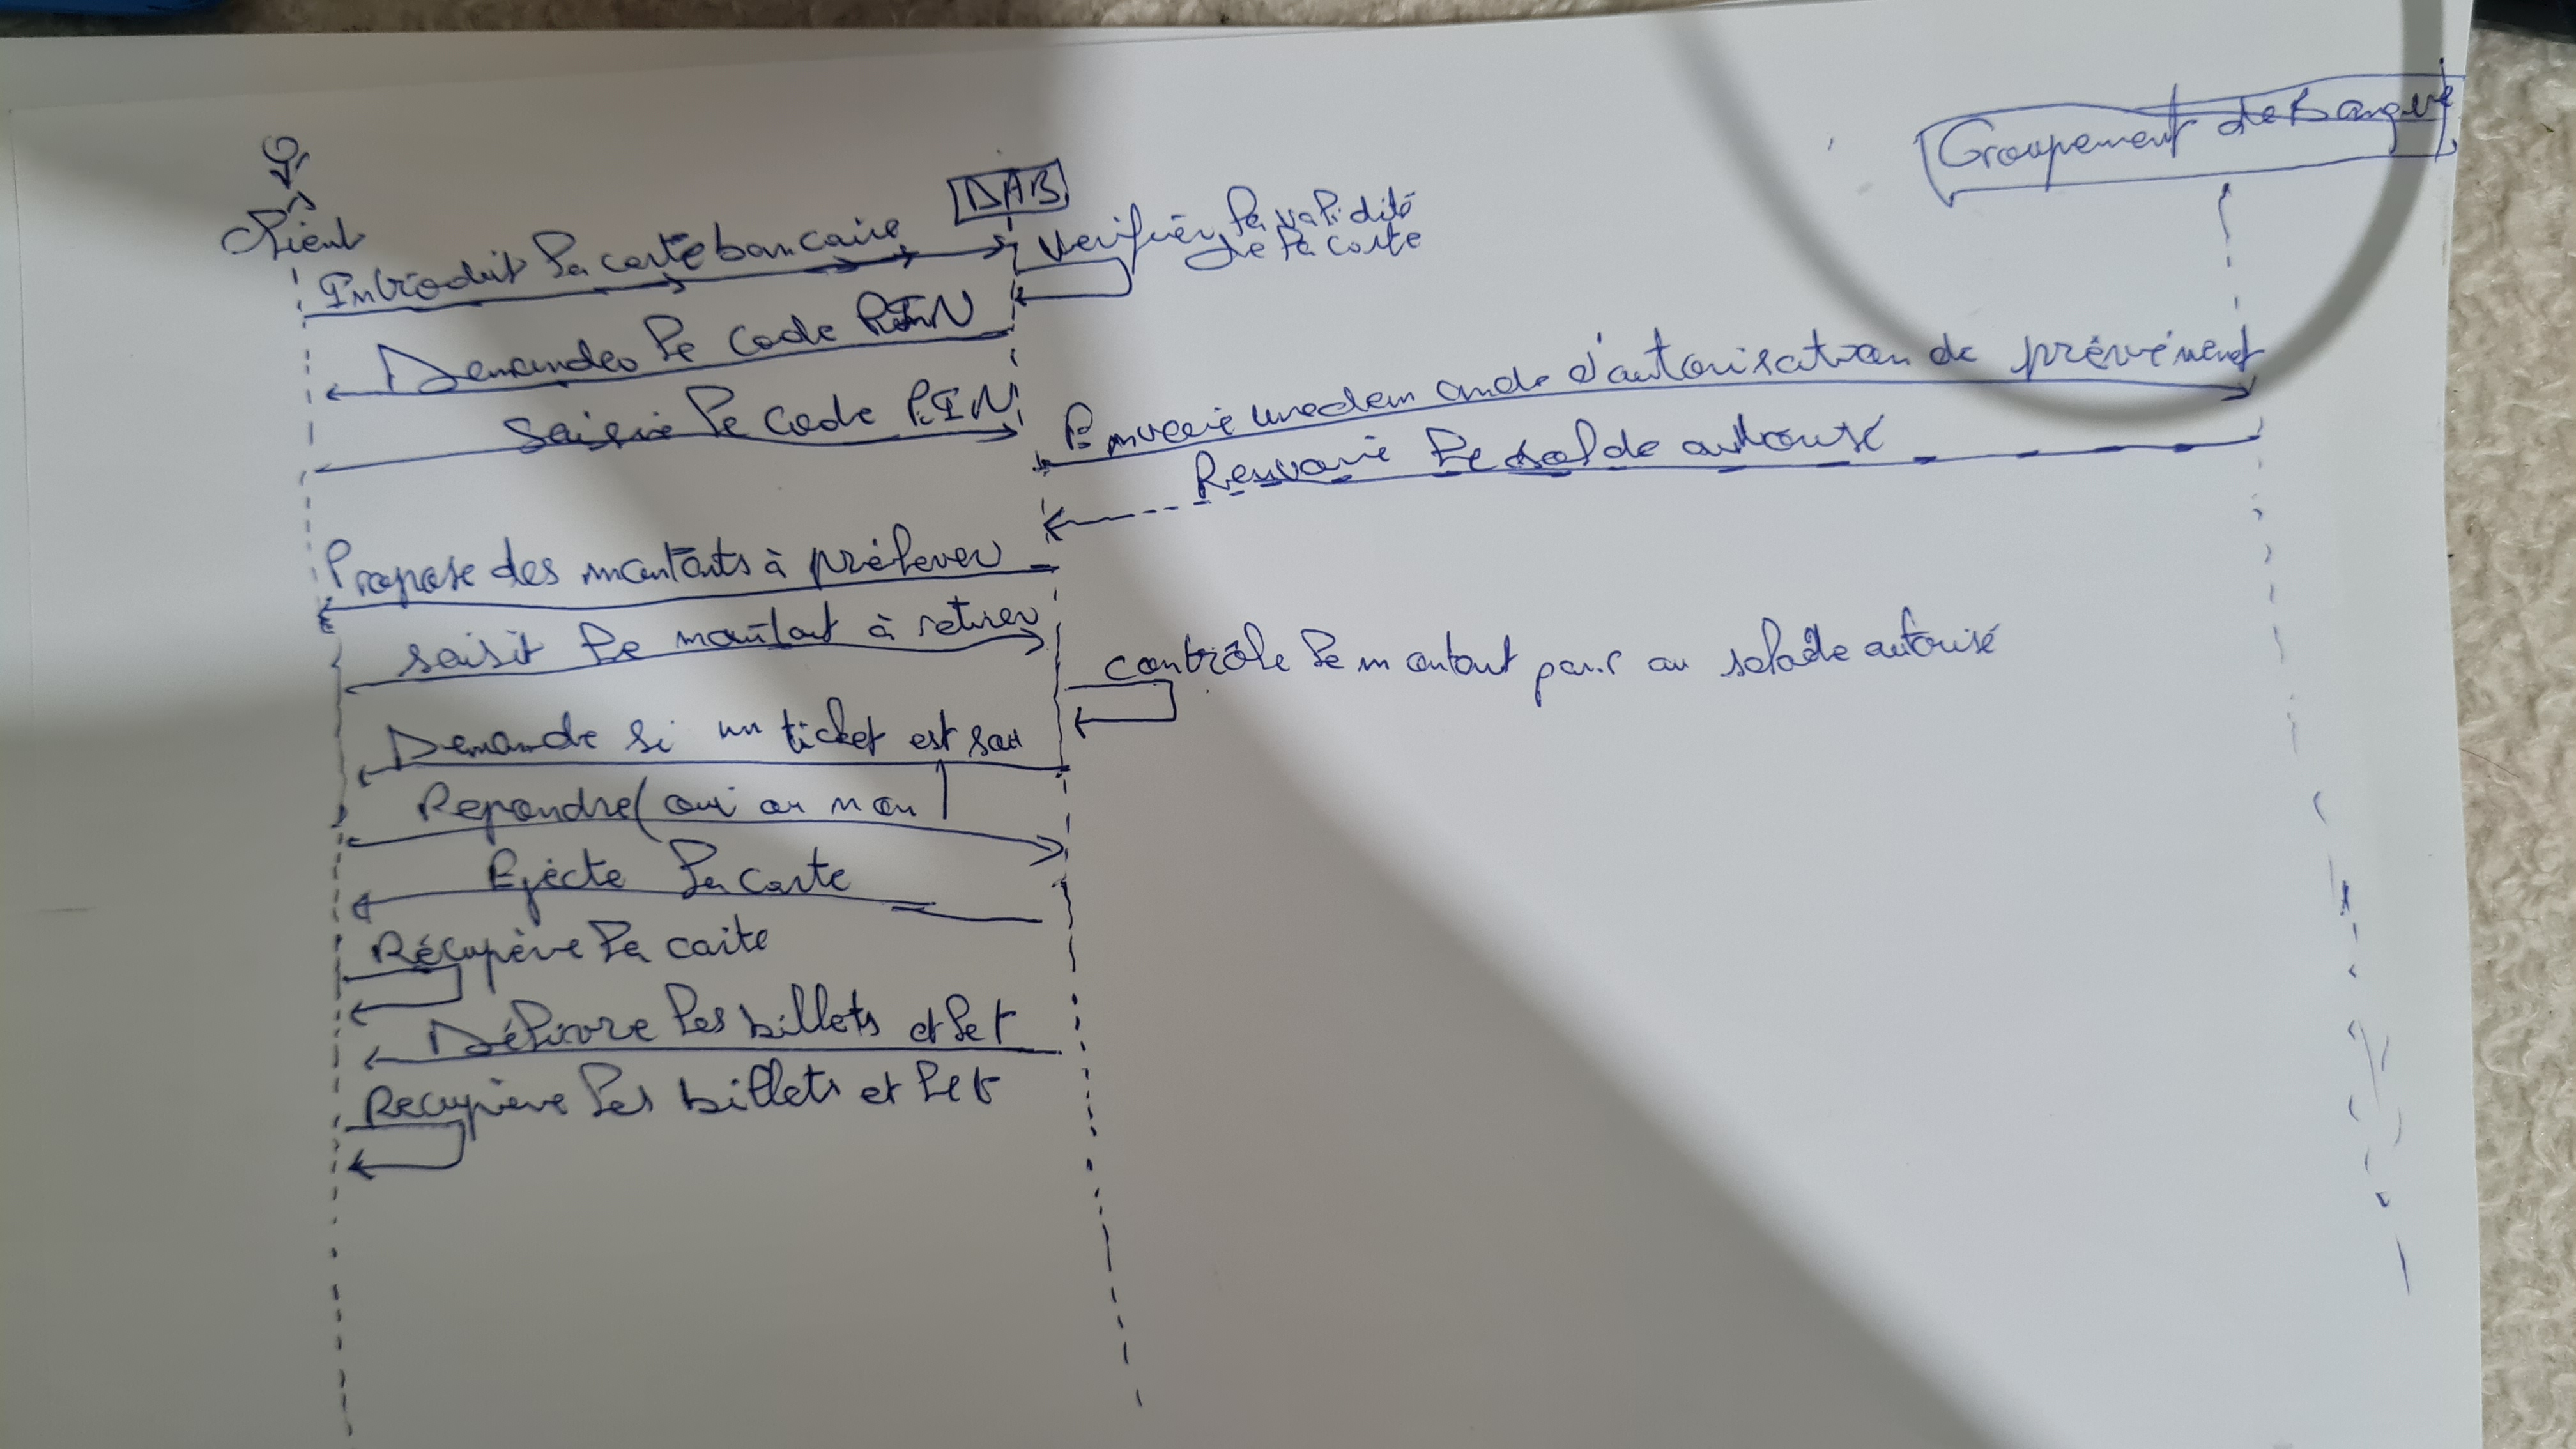 Client
DAB
Groupement de Banque
Introduit la carte bancaire
Verifier la validité
de la carte
Demander le code PIN
Saisie le code PIN
Envoie une demande d'autorisation de prévément
Renvoie le solde autorisé
Propose des montants à prélever
saisit le montant à retirer
Contrôle le montant par au solde autorisé
Demande si un ticket est sou
Repondre (oui ou non)
Ejecte la carte
Récupère la carte
Délivre les billets et le t
Recupère les billets et le t